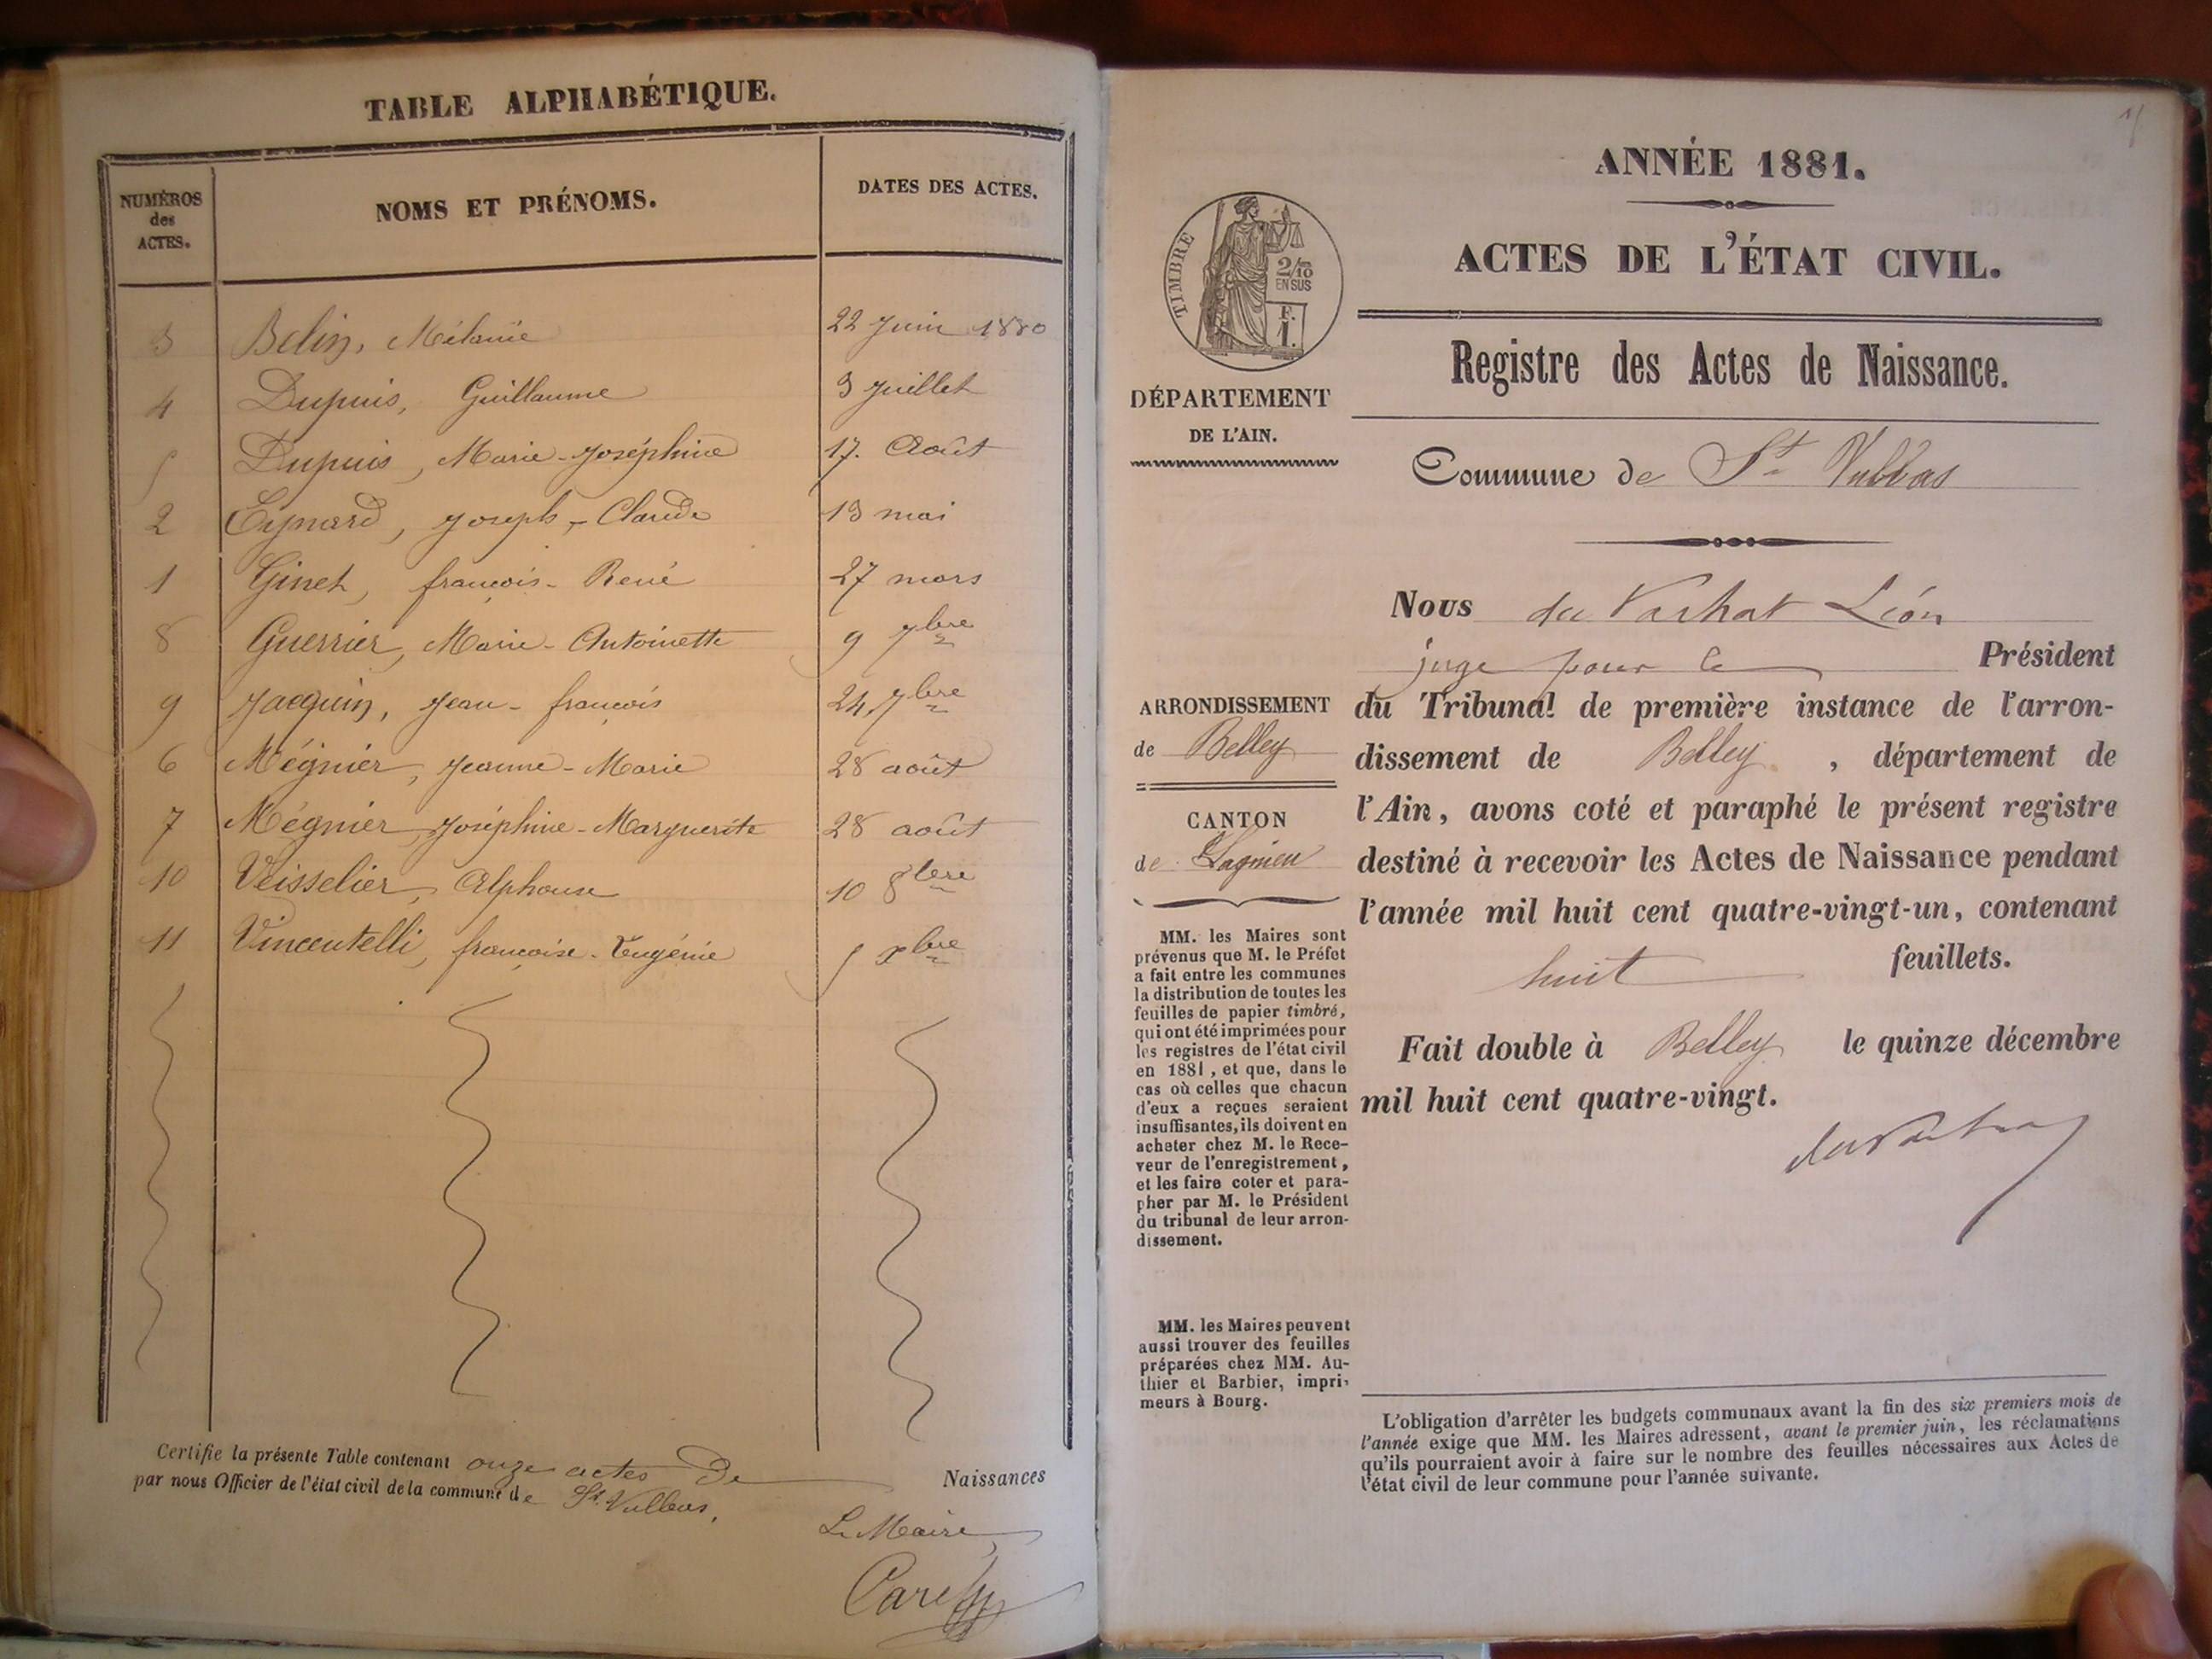 TABLE ALPHABÉTIQUE.
NUMÉROS
des
ACTES.
NOMS ET PRÉNOMS.
DATES DES ACTES.
3 Belin, Mélanie 22 Juin 1880
4 Dupuis, Guillaume 3 Juillet
5 Dupuis, Marie-Joséphine 17. Août
2 Eynard, Joseph-Claude 13 mai
1 Ginet, françois-René 27 mars
8 Guerrier, Marie-Antoinette 9 7bre
9 Jacquin, Jean-françois 24 7bre
6 Mégnier, Jeanne-Marie 28 août
7 Mégnier, Joséphine-Marguerite 28 août
10 Veisselier, Alphonse 10 8bre
11 Vincentelli, françoise-Eugénie 5 Xbre
Certifie la présente Table contenant onze actes De Naissances
par nous Officier de l'état civil de la commune de St. Vulbas.
Le Maire,
ANNÉE 1881.
ACTES DE L'ÉTAT CIVIL.
TIMBRE
2/10
EN SUS
F.
1.
DÉPARTEMENT
DE L'AIN.
Registre des Actes de Naissance.
Commune de St Vulbas
Nous Léon
juge pour le Président
du Tribunal de première instance de l'arron-
dissement de Belley, département de
l'Ain, avons coté et paraphé le présent registre
destiné à recevoir les Actes de Naissance pendant
l'année mil huit cent quatre-vingt-un, contenant
huit feuillets.
Fait double à Belley le quinze décembre
mil huit cent quatre-vingt.
ARRONDISSEMENT
de Belley
CANTON
de Lagnieu
MM. les Maires sont
prévenus que M. le Préfet
a fait entre les communes
la distribution de toutes les
feuilles de papier timbré,
qui ont été imprimées pour
les registres de l'état civil
en 1881, et que, dans le
cas où celles que chacun
d'eux a reçues seraient
insuffisantes, ils doivent en
acheter chez M. le Rece-
veur de l'enregistrement,
et les faire coter et para-
pher par M. le Président
du tribunal de leur arron-
dissement.
MM. les Maires peuvent
aussi trouver des feuilles
préparées chez MM. Au-
thier et Barbier, impri-
meurs à Bourg.
L'obligation d'arrêter les budgets communaux avant la fin des six premiers mois de
l'année exige que MM. les Maires adressent, avant le premier juin, les réclamations
qu'ils pourraient avoir à faire sur le nombre des feuilles nécessaires aux Actes de
l'état civil de leur commune pour l'année suivante.